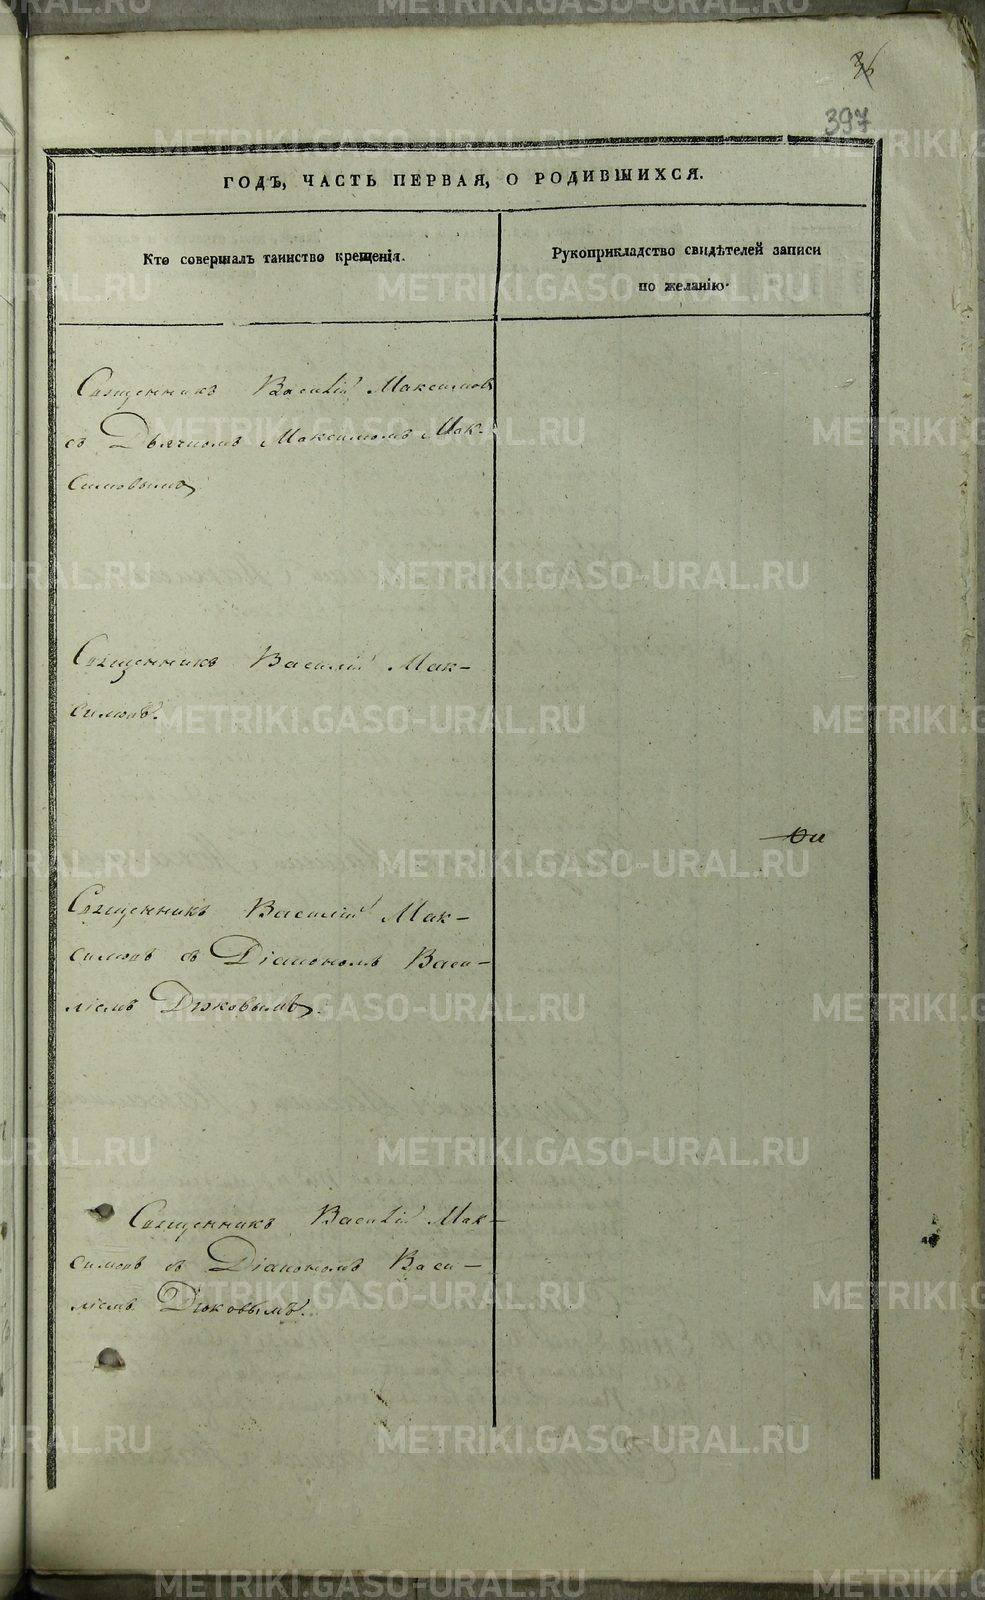 397
ГОДЪ, ЧАСТЬ ПЕРВАЯ, О РОДИВШИХСЯ.
Кто совершалъ таинство крещенія.
Рукоприкладство свидѣтелей записи
по желанію.
Священникъ Василій Максимовъ
съ Дьячкомъ Максимомъ Мак-
симовымъ
Священникъ Василій Мак-
симовъ.
Священникъ Василій Мак-
симовъ съ Діакономъ Васи-
ліемъ Дюковымъ.
Священникъ Василій Мак-
симовъ съ Діакономъ Васи-
ліемъ Дюковымъ.
METRIKI.GASO-URAL.RU